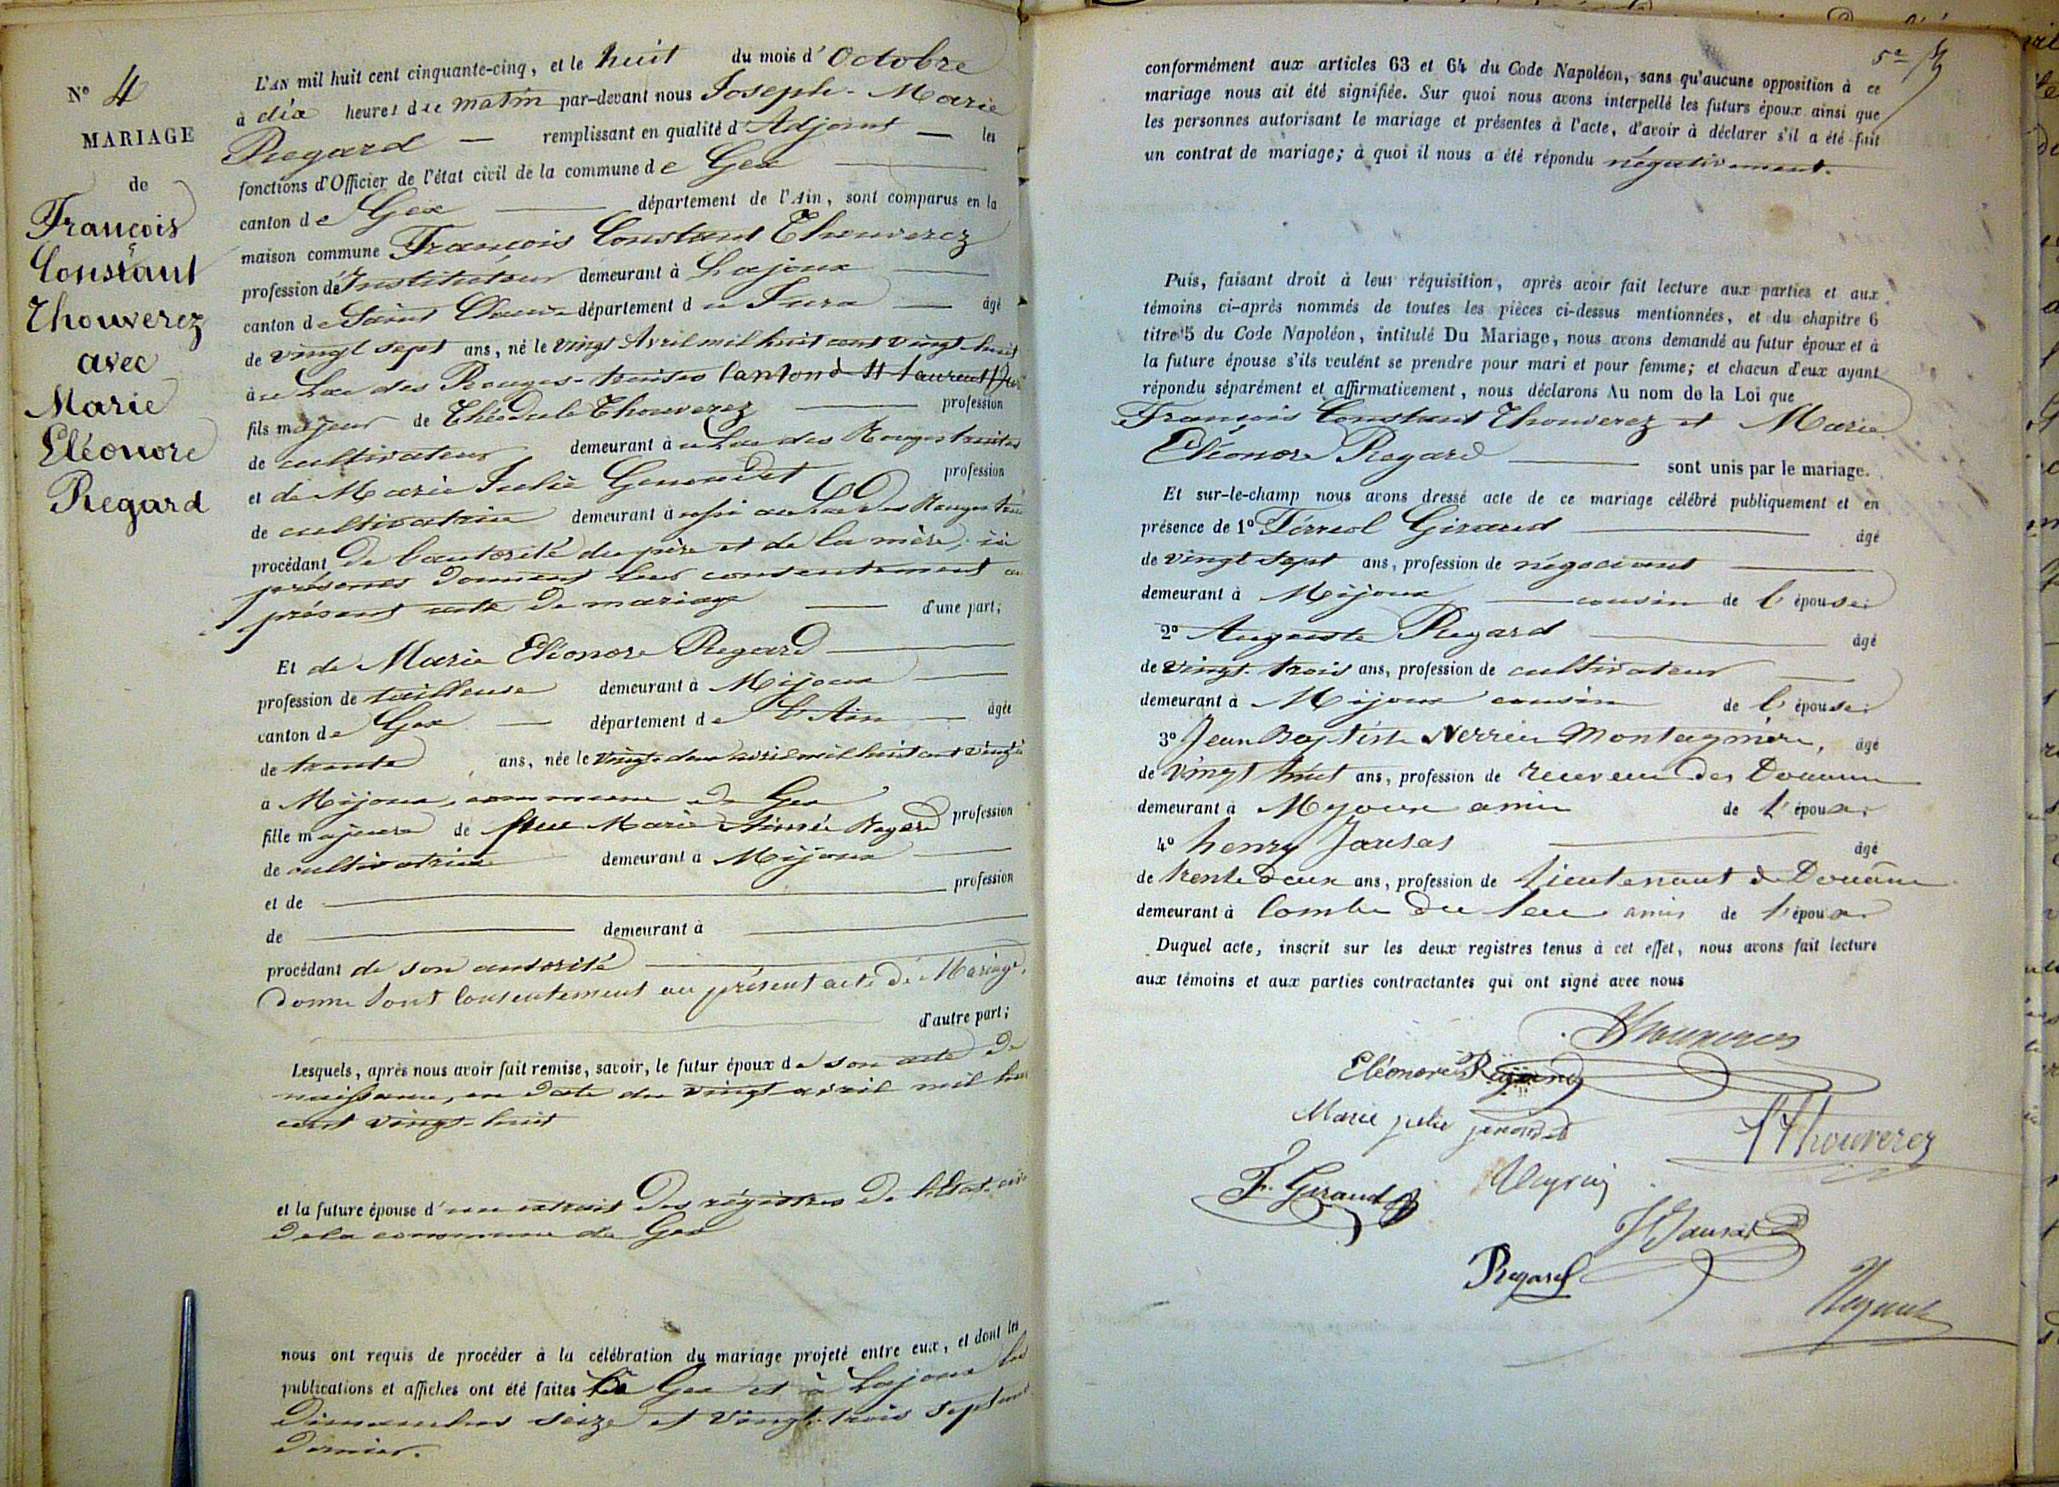 N° 4
MARIAGE
de
François
Constant
Thouverez
avec
Marie
Eléonore
Regard
L'AN mil huit cent cinquante-cinq, et le huit du mois d'Octobre
à dix heures du matin par-devant nous Joseph-Marie
Regard remplissant en qualité d'Adjoint les
fonctions d'Officier de l'état civil de la commune de Gex
canton de Gex département de l'Ain, sont comparus en la
maison commune François Constant Thouverez
profession d'Instituteur demeurant à Lajoux
canton de Saint Claude département du Jura âgé
de vingt sept ans, né le vingt Avril mil huit cent vingt-huit
au Lac des Rouges-truites Canton de St Laurent
fils majeur de Théodule Thouverez profession
de cultivateur demeurant au Lac des Rouges truites
et de Marie Julie profession
de cultivatrice demeurant aussi au Lac des Rouges
procédant de l'autorité du père et de la mère, ici
présents donnent leur consentement au
présent acte de mariage d'une part;
Et de Marie Eléonore Regard
profession de tailleuse demeurant à Mijoux
canton de Gex département de l'Ain âgée
de trente ans, née le vingt-deux avril mil huit cent vingt
à Mijoux, commune de Gex
fille majeure de Marie Aimée Regard profession
de cultivatrice demeurant à Mijoux
et de profession
de demeurant à
procédant de son autorité
donne sont consentement au présent acte de Mariage,
d'autre part;
Lesquels, après nous avoir fait remise, savoir, le futur époux de son acte de
naissance, en date du vingt avril mil
cent vingt-huit
et la future épouse d'un extrait des régistres de l'état
de la commune de Gex
nous ont requis de procéder à la célébration du mariage projeté entre eux, et dont les
publications et affiches ont été faites Gex et à Lajoux les
Dimanches seize et vingt-trois
dernier.
conformément aux articles 63 et 64 du Code Napoléon, sans qu'aucune opposition à ce
mariage nous ait été signifiée. Sur quoi nous avons interpellé les futurs époux ainsi que
les personnes autorisant le mariage et présentes à l'acte, d'avoir à déclarer s'il a été fait
un contrat de mariage; à quoi il nous a été répondu négativement.
Puis, faisant droit à leur réquisition, après avoir fait lecture aux parties et aux
témoins ci-après nommés de toutes les pièces ci-dessus mentionnées, et du chapitre 6
titre 5 du Code Napoléon, intitulé Du Mariage, nous avons demandé au futur époux et à
la future épouse s'ils veulent se prendre pour mari et pour femme; et chacun d'eux ayant
répondu séparément et affirmativement, nous déclarons Au nom de la Loi que
François Constant Thouverez et Marie
Eléonore Regard sont unis par le mariage.
Et sur-le-champ nous avons dressé acte de ce mariage célébré publiquement et en
présence de 1° Férréol Giraud âgé
de vingt sept ans, profession de négociant
demeurant à Mijoux cousin de l'épouse;
2° Auguste Regard âgé
de vingt-trois ans, profession de cultivateur
demeurant à Mijoux cousin de l'épouse;
3° Jean Baptiste Montagnière, âgé
de vingt huit ans, profession de receveur des Douanes
demeurant à Myoux amis de l'époux;
4° henry Jausas âgé
de trente deux ans, profession de Lieutenant de Douane
demeurant à amis de l'époux
Duquel acte, inscrit sur les deux registres tenus à cet effet, nous avons fait lecture
aux témoins et aux parties contractantes qui ont signé avec nous
Thouverez
Eléonore Regard
Marie julie
Thouverez
F. Giraud
Regard